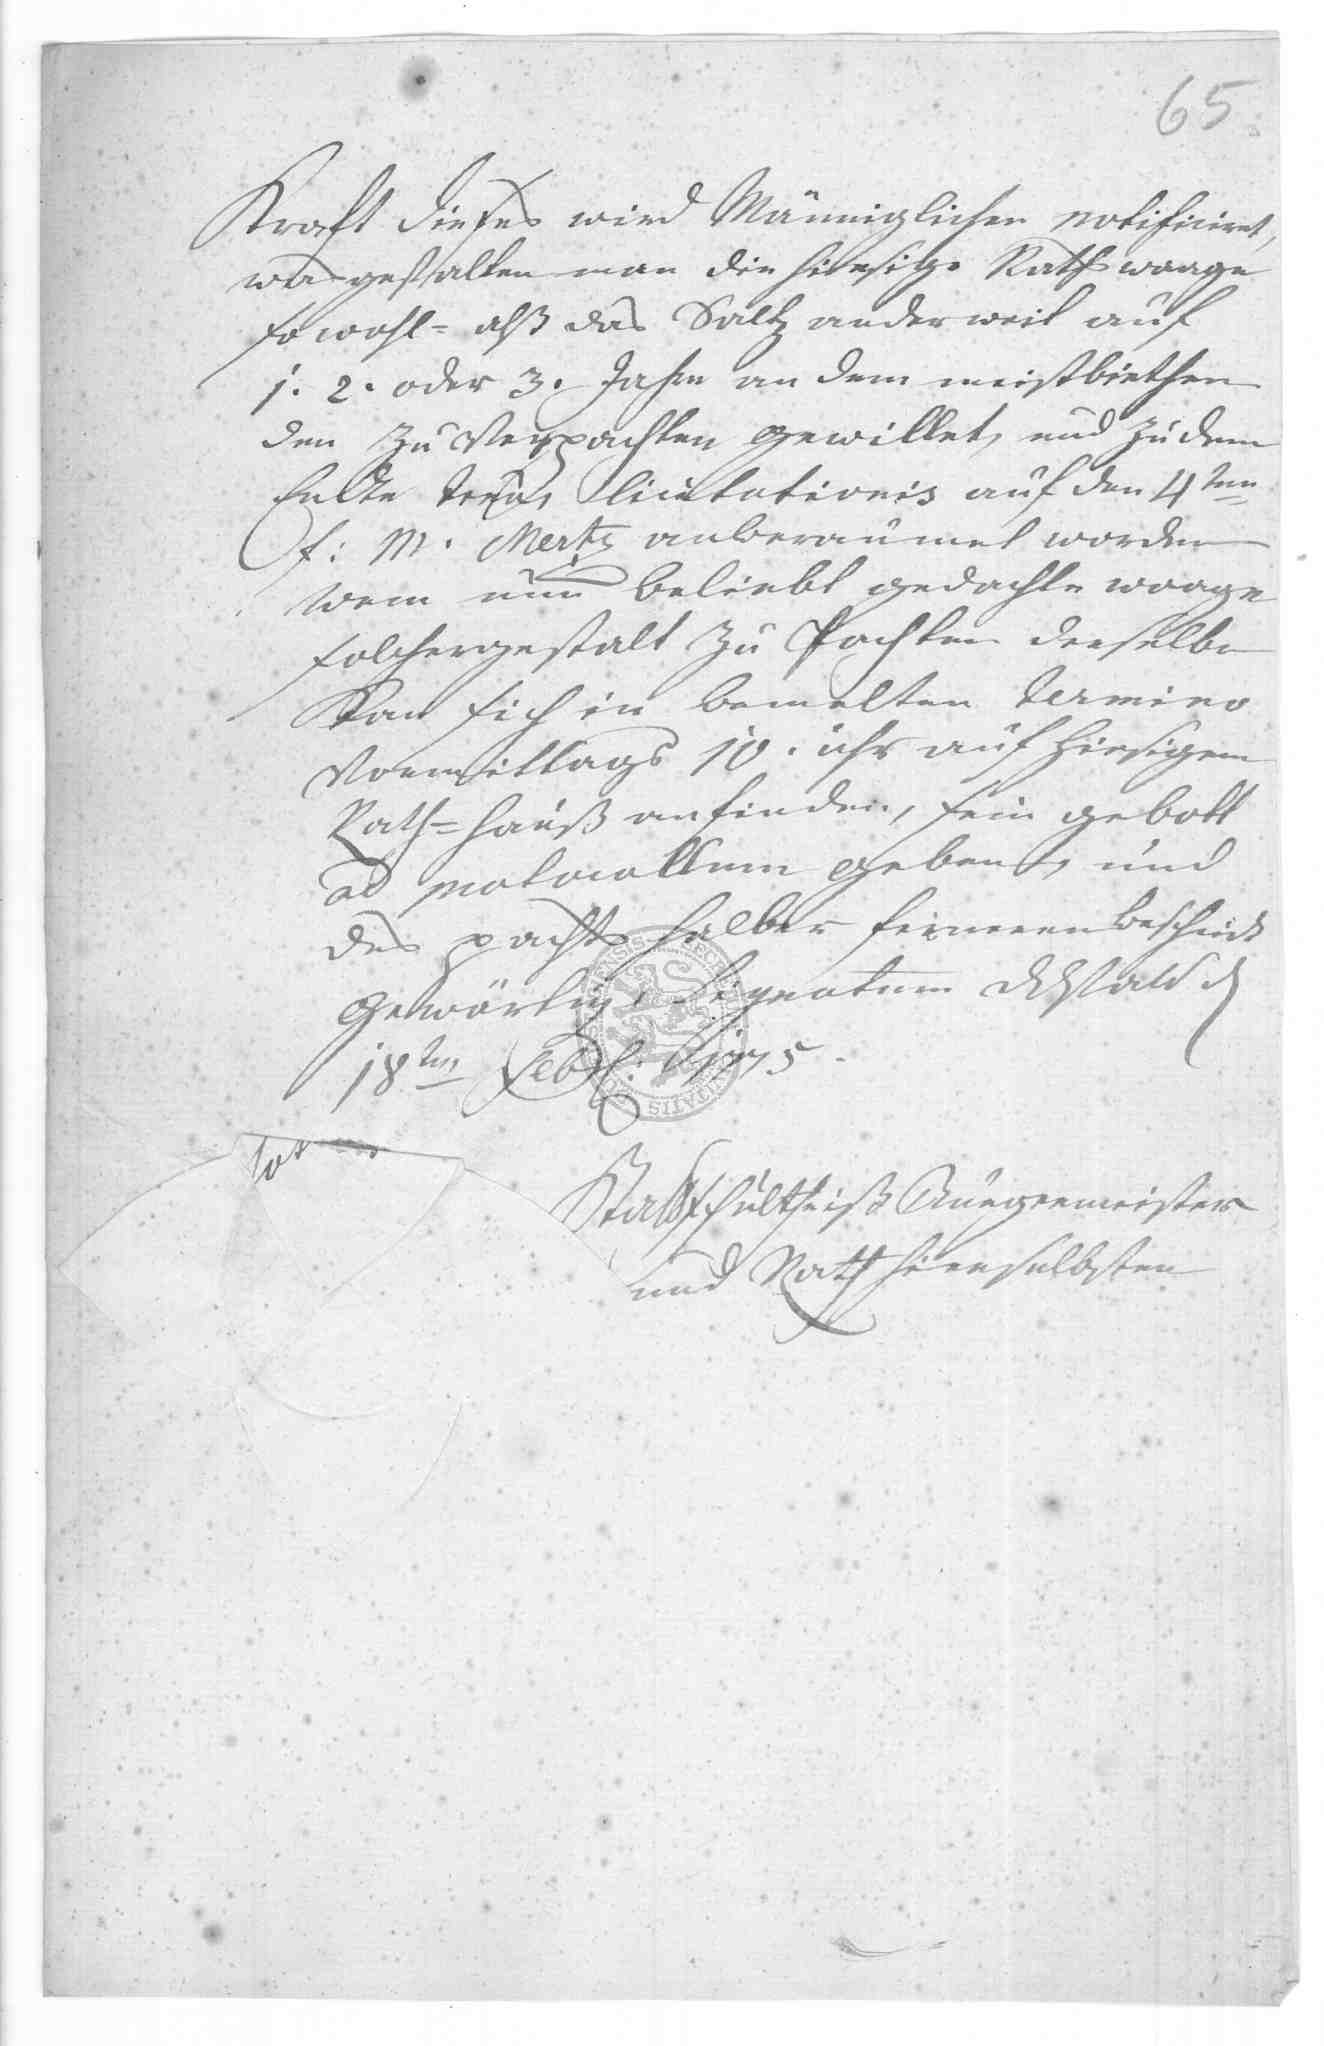 65.
Krafft dieses wird Männiglichen notificiret,
wasgestalten man die hiesige Raths waage
so wohl= alß das Saltz anderweit auf
1. 2. oder 3. Jahre an dem meistbiethen
den zu Verpachten gewillet, und zu dem
Ende licitationis auf den 4ten
f: M. Mertz anberaumet worden
Wem nun beliebt gedachte waage
solchergestalt zu Pachten derselbe
Kan sich in bemelten Termino
Vormittags 10. uhr auf hiesigem
Rath=hauß anfinden, sein gebott
ad protocollum geben, und
des pachts halber ferneren bescheidt
gewärtig. Signatum
18ten Febr: 1775.
Stattschultheiß Bürgermeister
und Rath hierselbsten